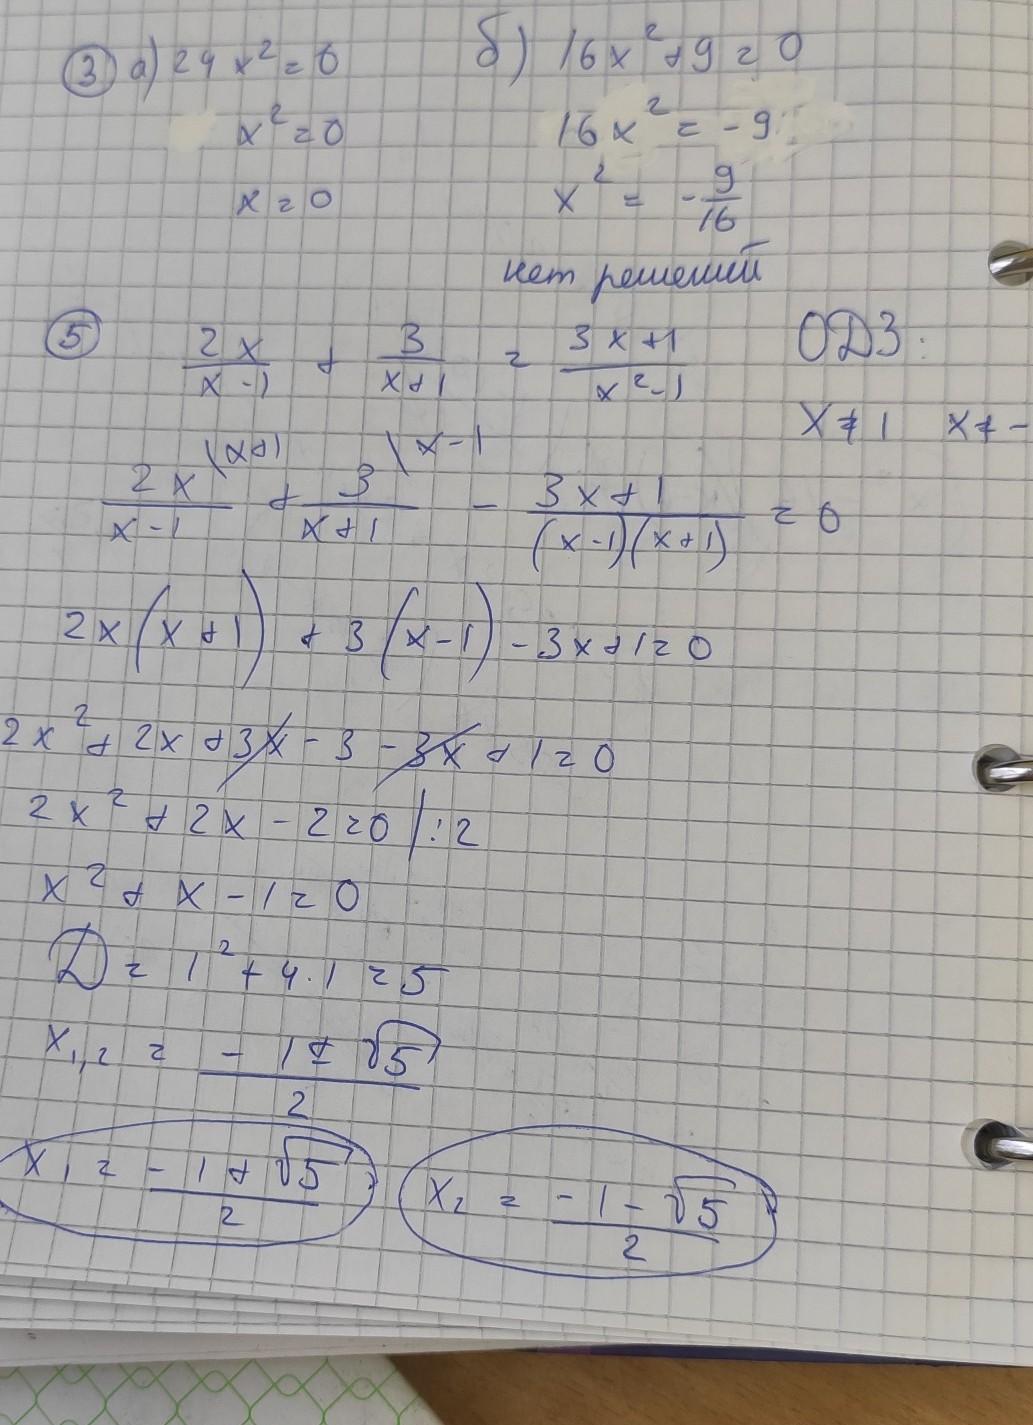 ③ а) 24x² = 0
x² = 0
x = 0
б) 16x² + 9 = 0
16x² = -9
x² = -9/16
нет решений
⑤ 2x/(x-1) + 3/(x+1) = (3x+1)/(x²-1)
ОДЗ:
x ≠ 1 x ≠ -
2x\(x+1/(x-1) + 3\x-1/(x+1) - (3x+1)/((x-1)(x+1)) = 0
2x(x+1) + 3(x-1) - 3x+1 = 0
2x² + 2x + 3x - 3 - 3x + 1 = 0
2x² + 2x - 2 = 0 |:2
x² + x - 1 = 0
D = 1² + 4·1 = 5
x₁,₂ = (-1 ± √5)/2
x₁ = (-1 + √5)/2
x₂ = (-1 - √5)/2